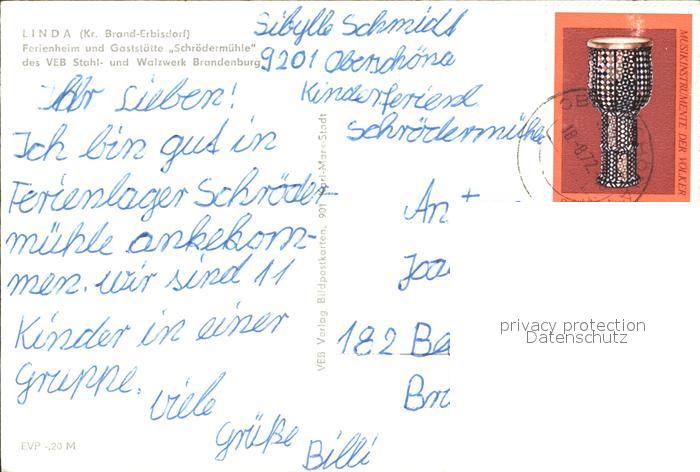 LINDA (Kr. Brand-Erbisdorf)
Ferienheim und Gaststätte „Schrödermühle"
des VEB Stahl- und Walzwerk Brandenburg
Sibylle Schmidt
9201 Oberschöna
Kinderferienl
Schrödermühle
Ihr Lieben!
Ich bin gut in
Ferienlager Schröder-
mühle ankekom-
men. wir sind 11
Kinder in einer
Gruppe.
viele
Grüße
Billi
EVP -,20 M
VEB Verlag Bildpostkarten, 901 Karl-Marx-Stadt
An
Joa
182 Be
Br
MUSIKINSTRUMENTE DER VÖLKER
18.-8.72
privacy protection
Datenschutz